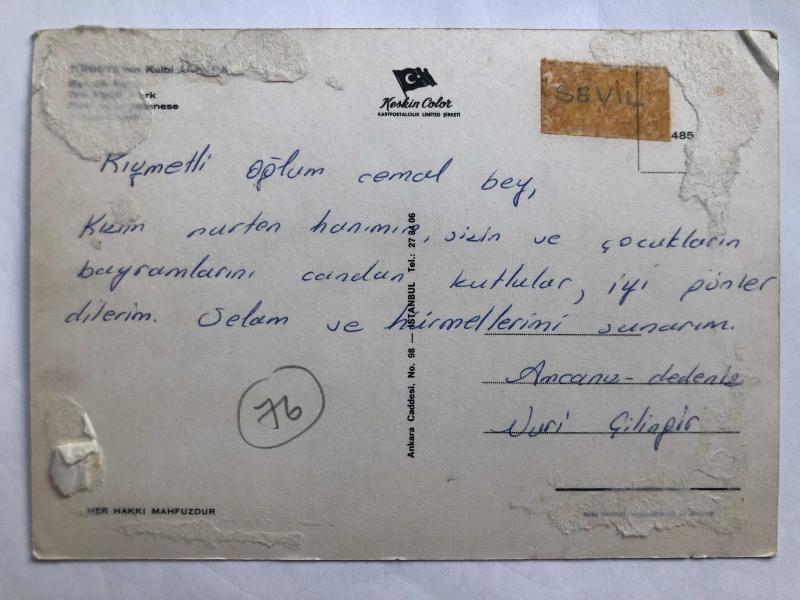 Kalbi
Keskin Color
KARTPOSTALCILIK LIMITED ŞİRKETİ
SEVİL
485
Kıymetli oğlum cemal bey,
Kızım nurten hanımın, sizin ve çocukların
bayramlarını candan kutlular, iyi günler
dilerim. Selam ve hürmetlerimi sunarım.
Amcanız - dedeniz
Nuri Çilingir
76
Ankara Caddesi, No. 98 — İSTANBUL Tel.: 27 34 06
HER HAKKI MAHFUZDUR